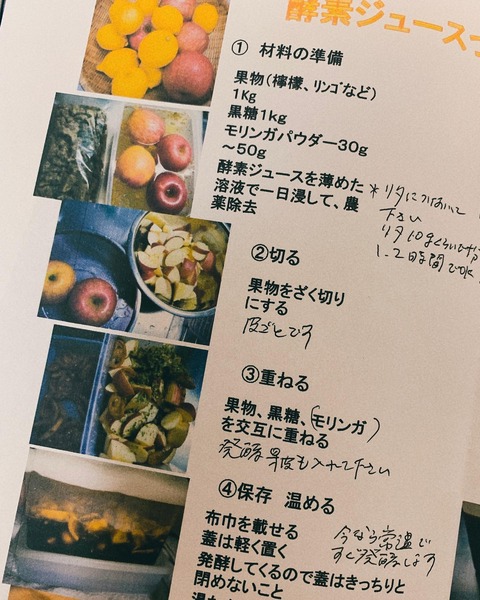 酵素ジュース
① 材料の準備
果物(檸檬、リンゴなど)
1Kg
黒糖1kg
モリンガパウダー30g
～50g
酵素ジュースを薄めた
溶液で一日浸して、農
薬除去
下さい
②切る
果物をざく切り
にする
皮ごとです
③重ねる
果物、黒糖、(モリンガ)
を交互に重ねる
発酵果皮も入れて下さい
④保存 温める
布巾を載せる
蓋は軽く置く
発酵してくるので蓋はきっちりと
閉めないこと
今なら常温で
すぐ発酵します